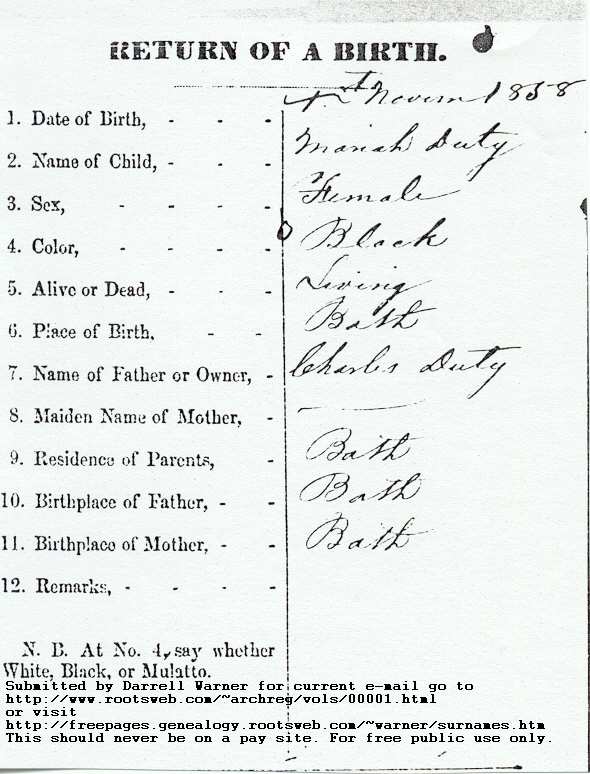 RETURN OF A BIRTH.
1. Date of Birth, - - - Novem 1858
2. Name of Child, - - - Mariah Duty
3. Sex, - - - - Female
4. Color, - - - - Black
5. Alive or Dead, - - - Living
6. Place of Birth, - - Bath
7. Name of Father or Owner, - Charles Duty
8. Maiden Name of Mother, - —
9. Residence of Parents, - Bath
10. Birthplace of Father, - - Bath
11. Birthplace of Mother, - - Bath
12. Remarks, - - - -
N. B. At No. 4, say whether
White, Black, or Mulatto.
Submitted by Darrell Warner for current e-mail go to
http://www.rootsweb.com/~archreg/vols/00001.html
or visit
http://freepages.genealogy.rootsweb.com/~warner/surnames.htm
This should never be on a pay site. For free public use only.